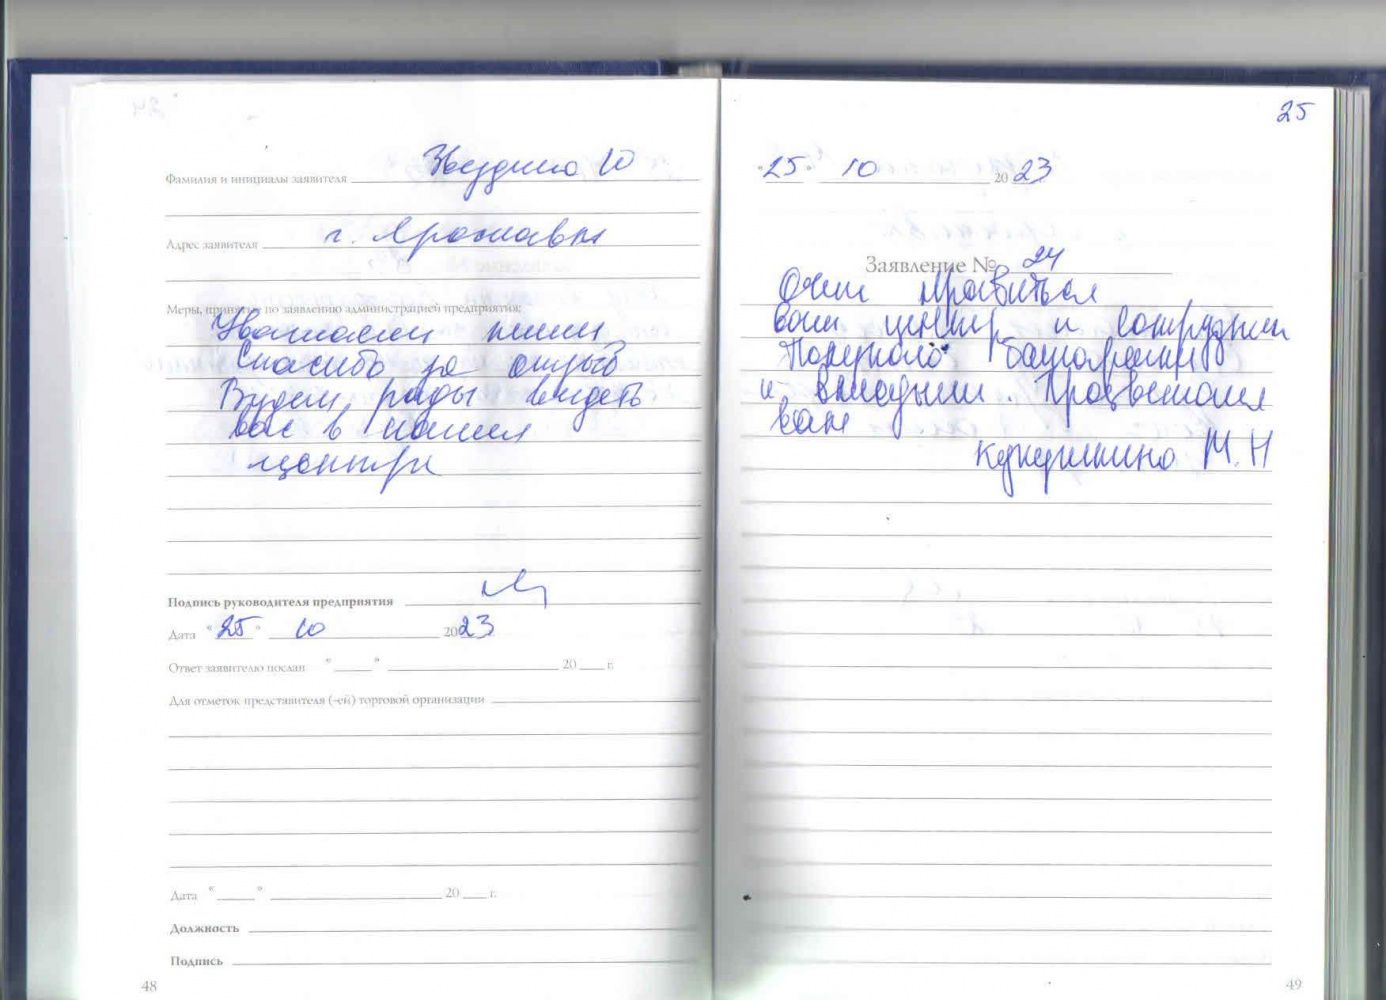 Фамилия и инициалы заявителя Звездина Ю
Адрес заявителя г. Ярославль
Меры, принятые по заявлению администрацией предприятия:
Спасибо за отзыв
Будем рады видеть
вас в нашем
центре
Подпись руководителя предприятия
Дата "25" 10 2023
Ответ заявителю послан " " 20 г.
Для отметок представителя (-ей) торговой организации
Дата " " 20 г.
Должность
Подпись
48
25
"25" 10 2023
Заявление № 24
Очень нравиться
ваш центр и сотрудники
и
вам
М.Н
49